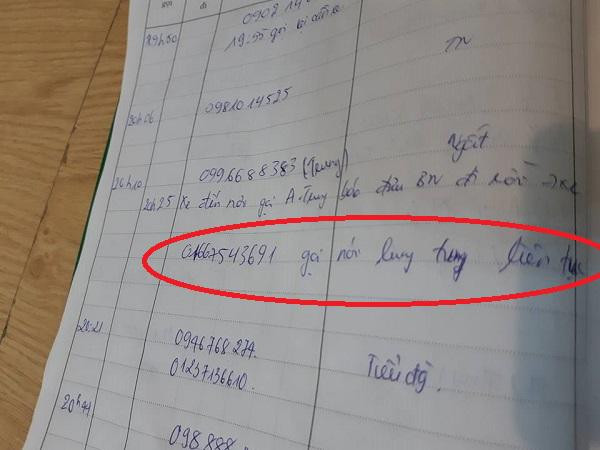 19h50
0902 14
19:55 gọi lại
TN
20h06
0981014525
Ngất
20h10
0996688383 (Trung)
20h25 Xe đến nơi gọi A.Trung báo BN đi rồi
01667543691 gọi nói lung tung liên tục
20:21
0946768274.
01237136610.
Tiểu đg.
20h44
098 888